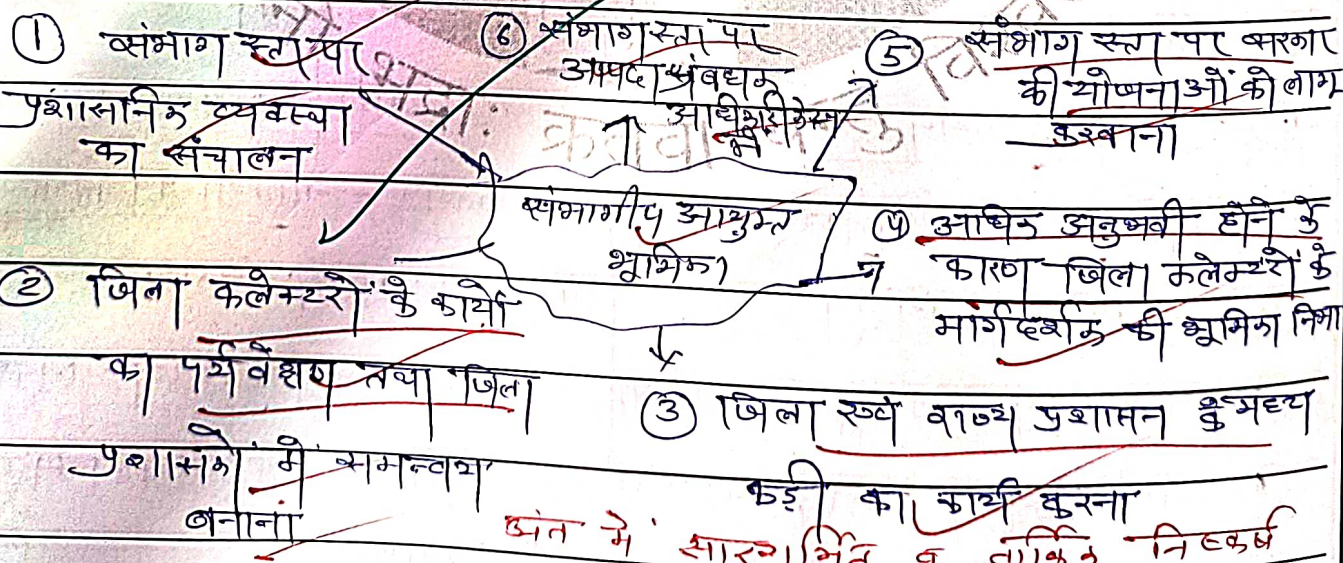 ① संभाग स्तर पर
प्रशासनिक व्यवस्था
का संचालन
⑥ संभाग स्तर पर
आपदा प्रबंधन
में
⑤ संभाग स्तर पर सरकार
की योजनाओं को लाभ
करवाना
संभागीय आयुक्त
भूमिका
④ अधिक अनुभवी होने के
कारण जिला कलेक्टरों के
मार्गदर्शक की भूमिका निभा
② जिला कलेक्टरों के कार्यों
का पर्यवेक्षण तथा जिला
प्रशासकों में समन्वय
बनाना
③ जिला एवं राज्य प्रशासन के मध्य
कड़ी का कार्य करना
अंत में सारगर्भित व तार्किक निष्कर्ष